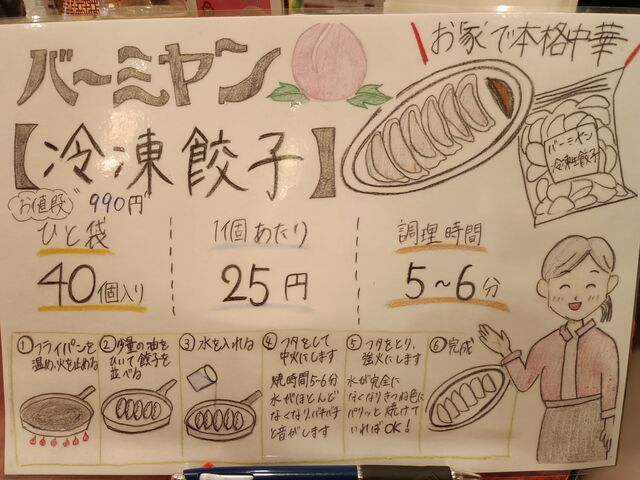 お家で本格中華
バーミヤン
【冷凍餃子】
バーミヤン
冷凍生餃子
お値段 990円
ひと袋
40個入り
1個あたり
25円
調理時間
5~6分
① フライパンを
温め、火を止める
② 少量の油を
ひいて餃子を
並べる
③ 水を入れる
④ フタをして
中火にします
焼時間5-6分
水がほとんど
なくなりパチパチ
と音がします
⑤ フタをとり、
強火にします
水が完全に
なくなりきつね色に
パリッと焼けて
いればOK!
⑥ 完成